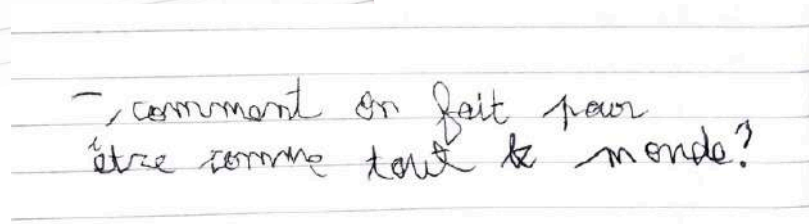 -, comment on fait pour
être comme tout le monde?